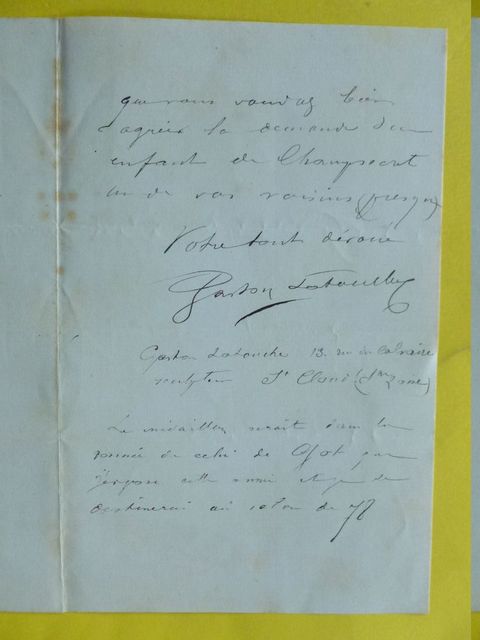 que vous voudrez bien
agréer la demande d'un
enfant de Champsecret
un de vos voisins (presque)
Votre tout dévoué
Gaston Latouche
Gaston Latouche 13 rue du Calvaire
sculpteur St Cloud (Sne Oise)
Le médaillon serait dans le
de celui de Got que
j'expose cette année et je le
destinerai au salon de